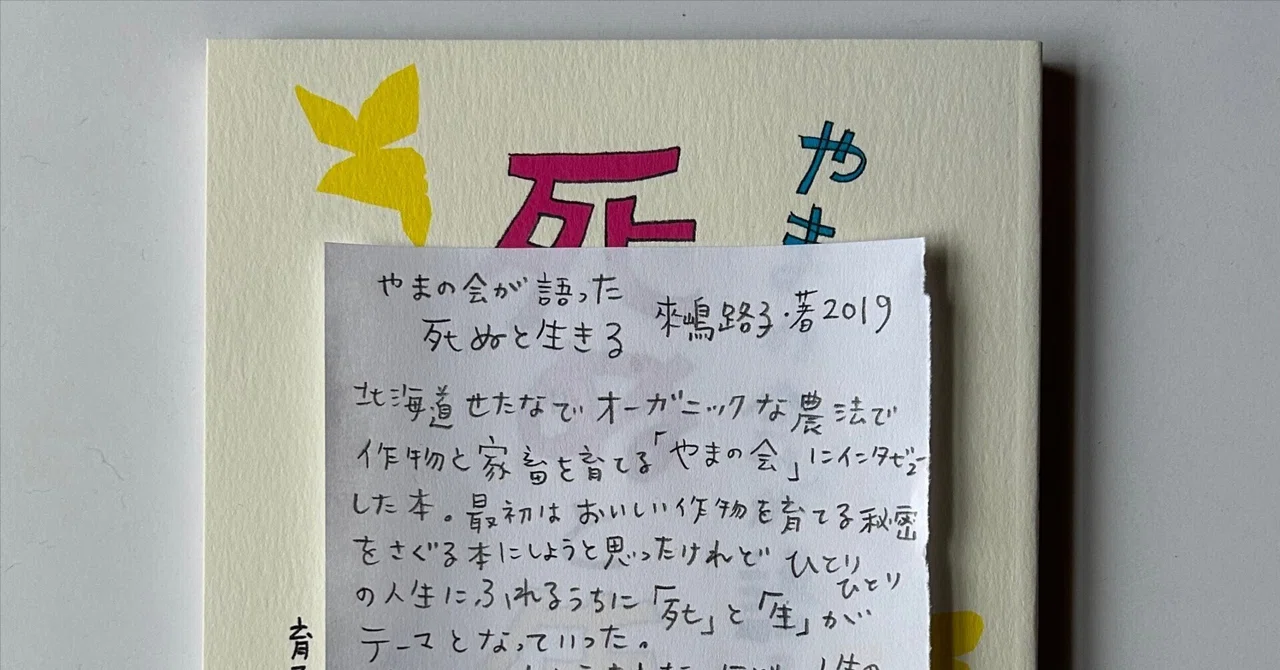 死
やま
やまの会が語った
死ぬと生きる
來嶋路子・著2019
北海道せたなでオーガニックな農法で
作物と家畜を育てる「やまの会」にインタビュー
した本。最初はおいしい作物を育てる秘密
をさぐる本にしようと思ったけれどひとり
ひとり
の人生にふれるうちに「死」と「生」が
テーマとなっていった。
育